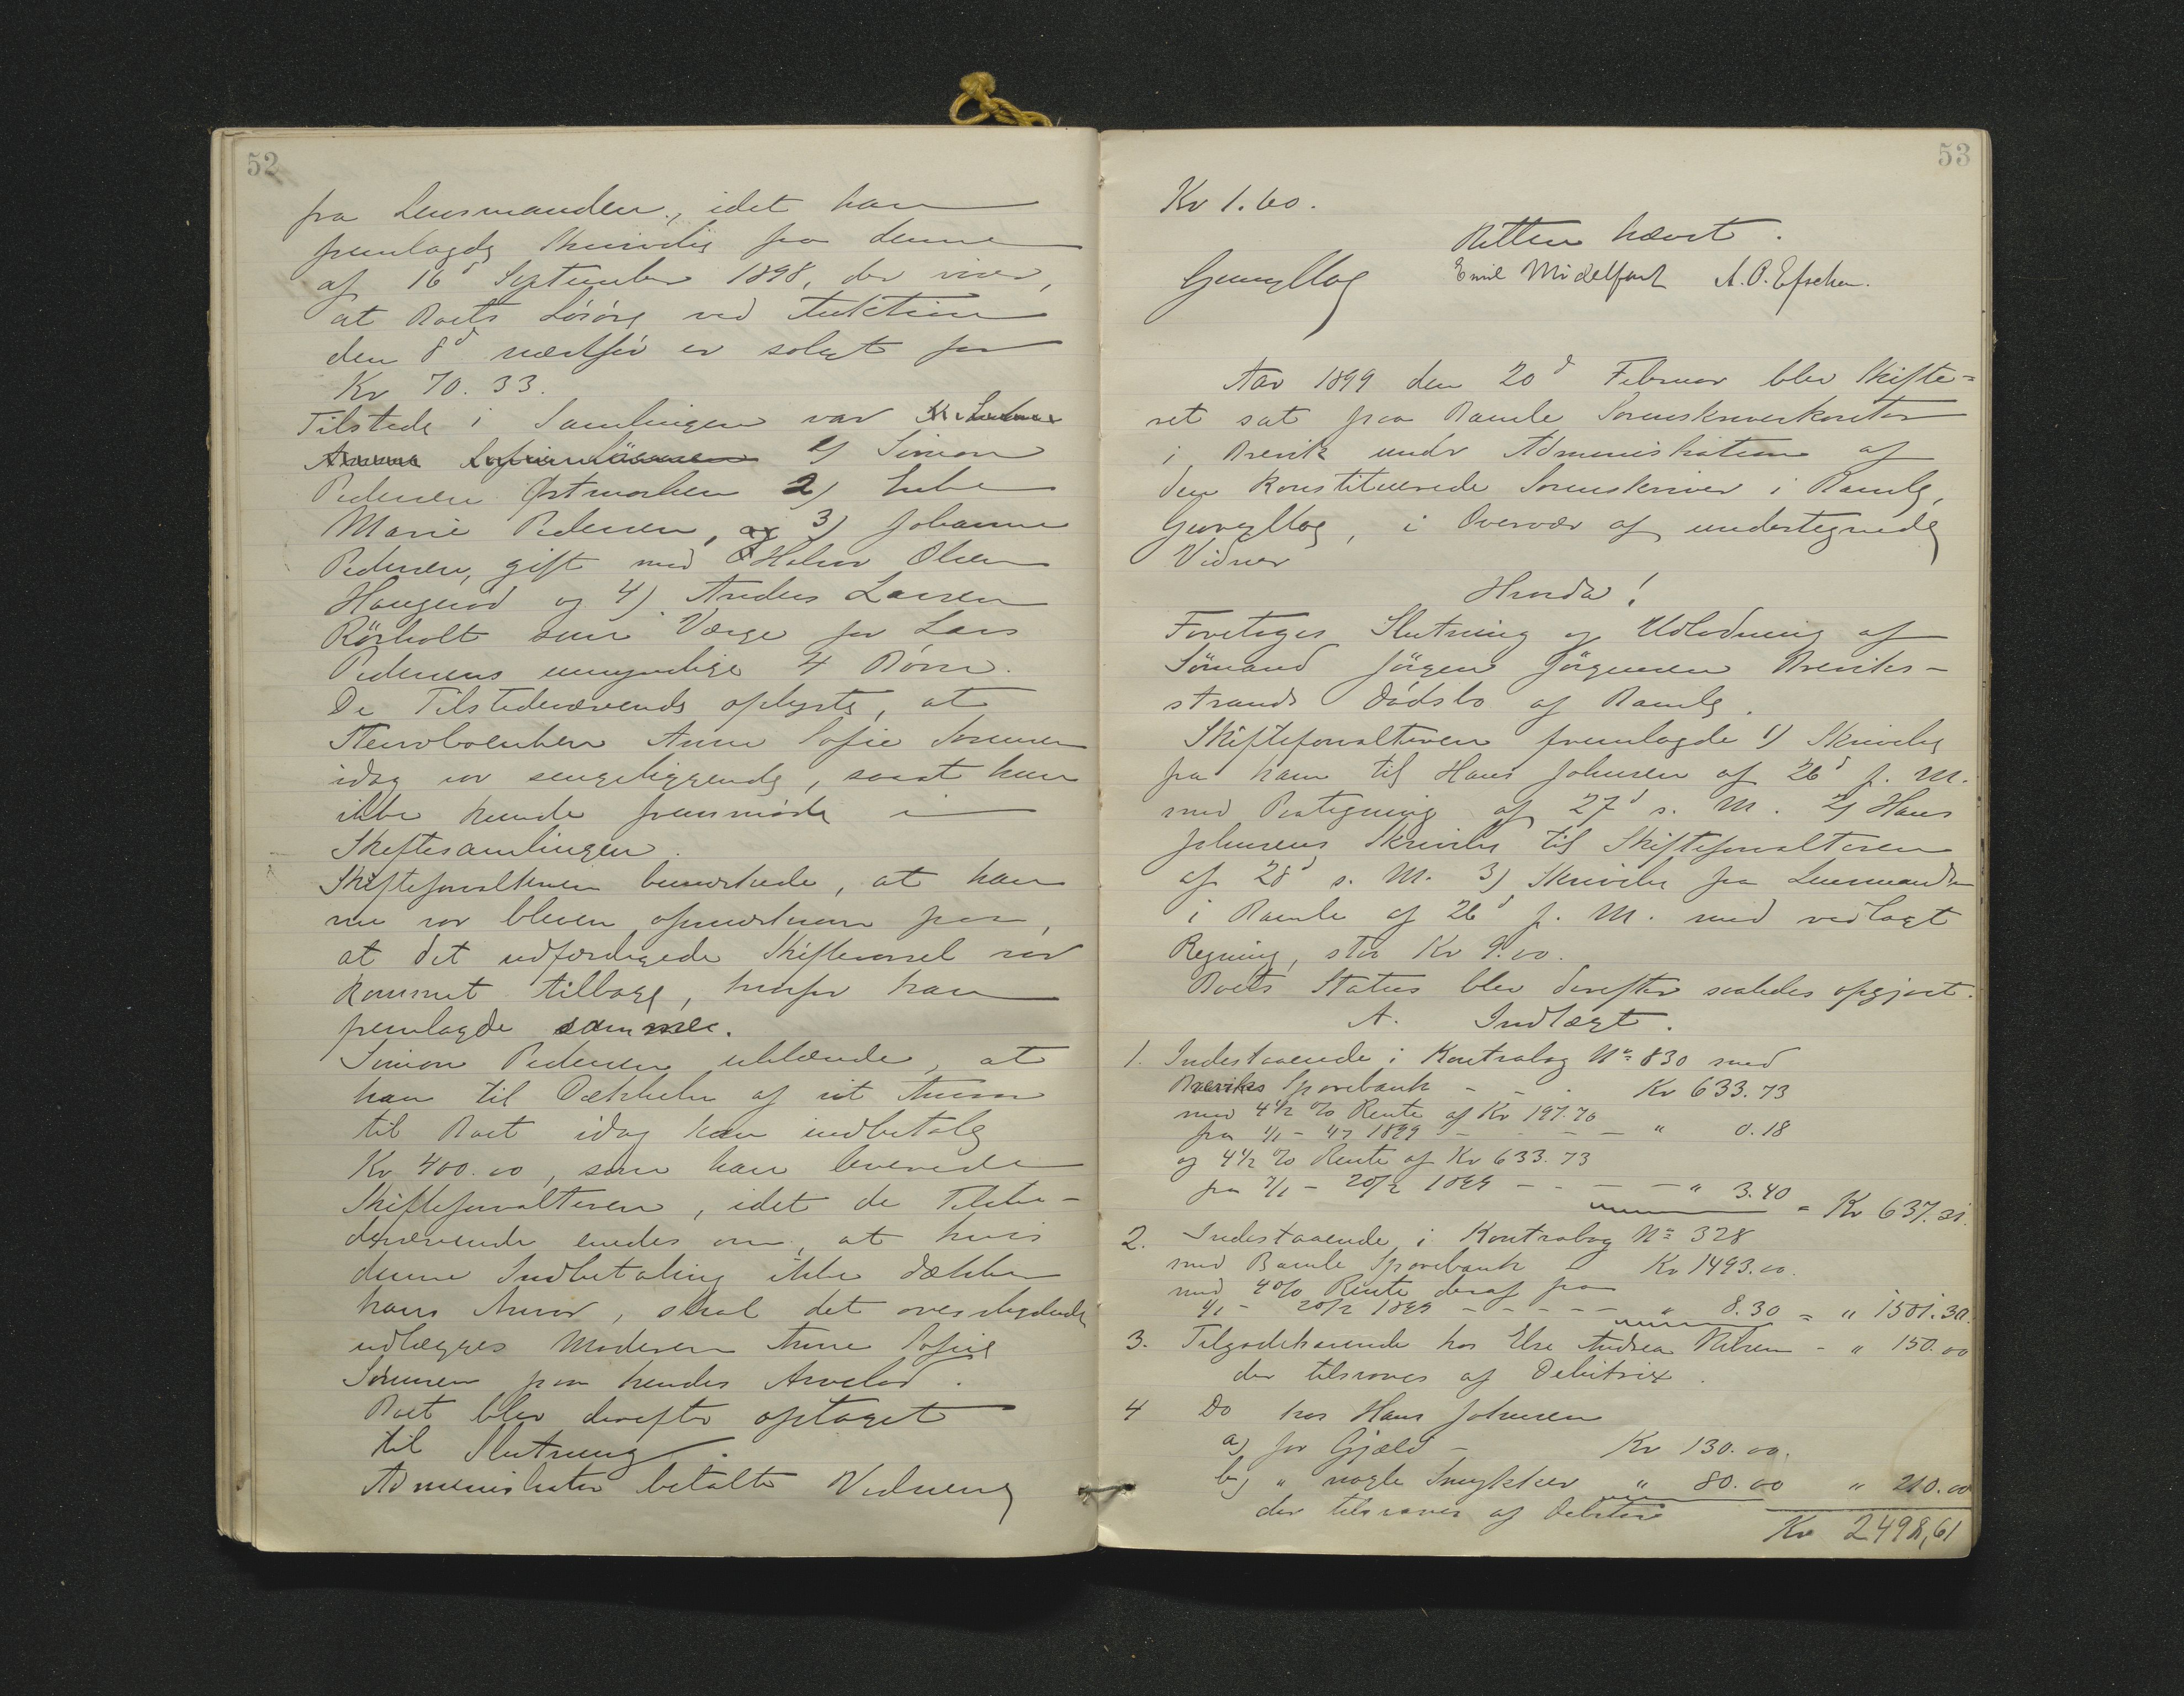 52
fra Lensmanden, idet han
fremlagde Skrivelse fra denne
af 16d September 1898, der viser,
at Boets Løsøre ved Auktion
den 8d næstfør er solgt for
Kr 70.33.
Tilstede i Samlingen var
1) Simon
Pedersen Østmarken 2)
Marie Pedersen, og 3) Johanne
Pedersen, gift med Halvor Olsen
Haugerød og 4) Anders Larsen
Rörholt som Værge for Lars
Pedersens umyndige 4 Børn.
De Tilstedeværende oplyste, at
Stervboenken Anne Sofie Sørensen
idag var sengeliggende, saat hun
ikke kunde fremmøde i
Skiftesamlingen.
Skifteforvalteren bemærkede, at han
nu var bleven opmærksom paa,
at det udfærdigede Skiftevarsel var
kommet tilbage, hvorfor han
fremlagde samme.
Simon Pedersen erklærede, at
han til Dækkelse af sit Ansvar
til Boet idag kan indbetale
Kr 400.00, som han leverede
Skifteforvalteren, idet de Tilste-
deværende enedes om, at hvis
denne Indbetaling ikke dækker
hans Ansvar, skal det overskydende
udlægges Moderen Anne Sofie
Sörensen paa hendes Arvelod.
Boet blev derefter optaget
til Slutning.
Administrator betalte Vidnerne
53
Kr 1.60.
Retten hævet.
Emil Midelfart A. O. Efsehen.
Aar 1899 den 20d Februar blev Skifte-
ret sat paa Bamle Sorenskriverkontor
i Brevik under Administration af
den konstituerede Sorenskriver i Bamle,
i Overvær af undertegnede
Vidner
Hvorda!
Foretoges Slutning og Udlodning af
Sömand Jörgen Jörgensen Breviks-
strands Dødsbo af Bamle.
Skifteforvalteren fremlagde 1) Skrivelse
fra ham til Hans Johnsen af 26d f. M.
med Paategning af 27d s. M. 2) Hans
Johnsens Skrivelse til Skifteforvalteren
af 28d s. M. 3) Skrivelse fra Lensmanden
i Bamle af 26d f. M. med vedlagt
Regning, stor Kr 9.00.
Boets Status blev derefter saaledes opgjort.
A. Indtægt.
1. Indestaaende i Kontrabog No 830 med
Breviks Sparebank - - - Kr 633.73
med 4 1/2 % Rente af Kr 197.70
fra 1/1 - 4/7 1899 - - - - " 0.18
og 4 1/2 % Rente af Kr 633.73
fra 7/1 - 20/2 1899 - - - - " 3.40 = Kr 637.31.
2. Indestaaende i Kontrabog No 328
med Bamle Sparebank - Kr 1493.00.
med 4 % Rente deraf fra
1/1 - 20/2 1899 - - - - - " 8.30 = " 1501.30.
3. Tilgodehavende hos Else Andrea Nilsen - " 150.00
der tilsvares af Debitrix.
4 Do hos Hans Johnsen
a) for Gjæld - Kr 130.00.
b) " nogle Smykker " 80.00 " 210.00
der tilsvares af Debitor
Kr 2498,61